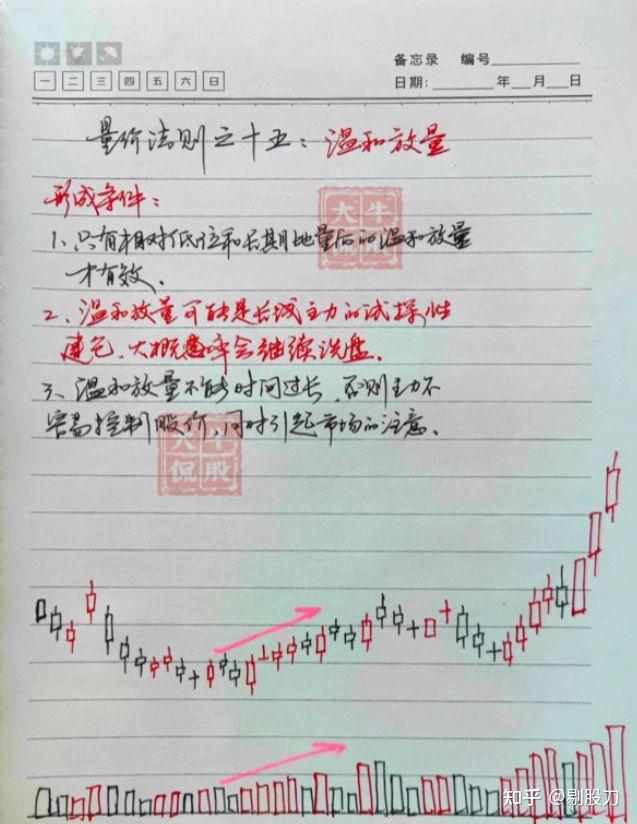 备忘录 编号
一 二 三 四 五 六 日
日期: 年 月 日
量价法则之十五：温和放量
形成条件：
1、只有相对低位和长期地量后的温和放量
才有效。
2、温和放量可能是长线主力的试探性
建仓、大概率会继续洗盘。
3、温和放量不能时间过长，否则主力不
容易控制股价，同时引起市场的注意。
大牛
侃股
大牛
侃股
知乎 @剔股刀